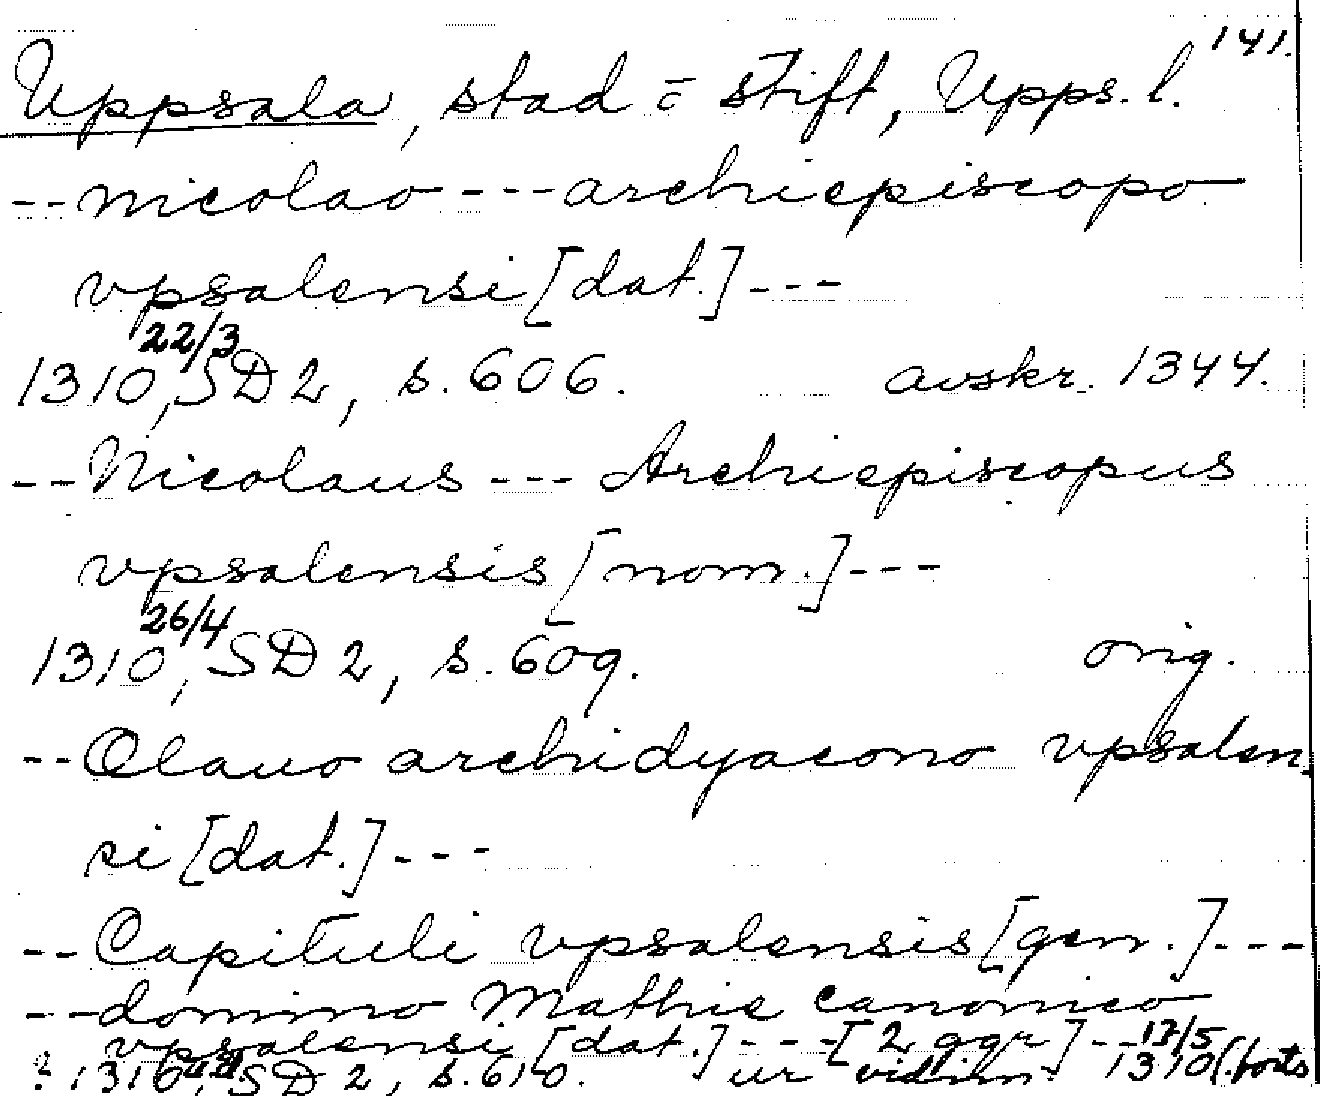 141.
Uppsala, stad o stift, Upps. l.
-- nicolao --- archiepiscopo
vpsalensi [dat.] ---
1310 22/3, SD 2, s. 606. avskr. 1344.
-- Nicolaus --- Archiepiscopus
vpsalensis [nom.] ---
1310 26/4, SD 2, s. 609. orig.
-- Olauo archidyacono vpsalen-
si [dat.] ---
-- Capituli vpsalensis [gen.] ---
-- domino Mathie canonico
vpsalensi [dat.] --- [2 ggr] --
? 1310, SD 2, s. 610. ur vidim. 13/5 1310 (forts